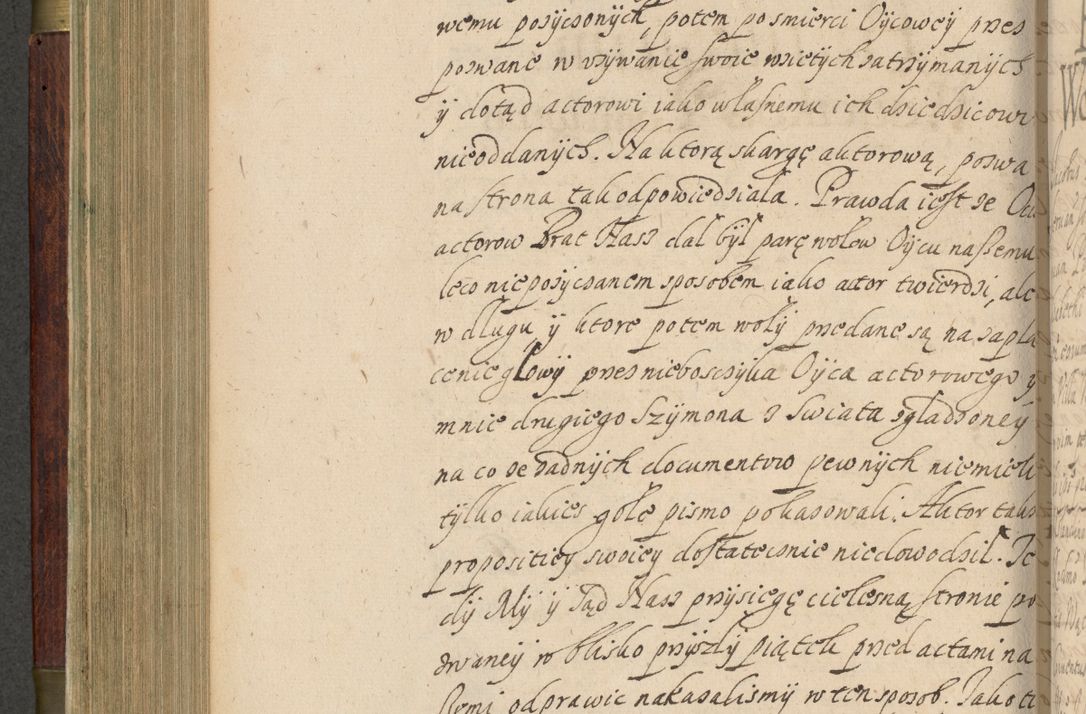 wemu pozyczonych, potem po smierci Oycowey przez
pozwane w vzywanie swoie wziętych zatrzymanych
ÿ dotąd actorowi iako własnemu ich dziedzicowi
nieoddanych. Na ktorą skargę aktorową, pozwa
na strona tak odpowiedziala. Prawda iest ze
actorow Brat Nasz dał był parę wołow Oycu naszemu
lecz nie pozyczanem sposobem iako actor twierdzi, ale
w długu, ÿ ktore potem woły przedane są na zapła
cenie głowy przez nieboszczyka Oyca actorowego ÿ
mnie drugiego Szymona z swiata zgladzoney
na co ze zadnych documentow pewnych niemieli
tylko iakies gołe pismo pokazowali. Aktor takze
propositiey swoiey dostatecznie niedowodził. Te
dy My ÿ Sąd Nasz przysięgę cielesną stronie po
zwaney w blisko przyszły piątek przed actami na
szemi odprawic nakazalismy w ten sposob. Iako